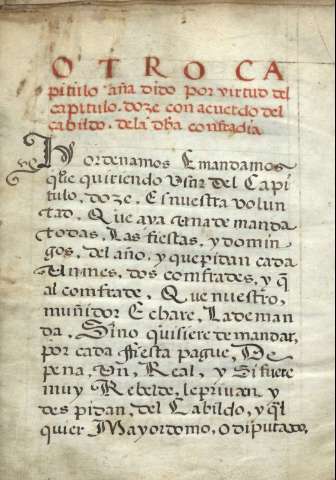 OTRO CA
pitulo añadido por virtud del
capitulo. doze con acuerdo del
cabildo. dela dha confradia
Y ordenamos E mandamos
que quiriendo Usar del Capi
tulo, doze, Es nuestra volun
tad, Que aya Enade manda
todas, Las fiestas, y domin
gos, del año, y que pitan cada
Un mes, dos comfrades, y q̃
al comfrade, Que nuestro,
muñidor Echare, La deman
da, Sino quisiere demandar,
por cada fiesta pague, De
pena, Un, Real, y Si fuere
muy Rebelde, le privan y
des pidan, del Cabildo, y q̃l
quier Mayordomo, o diputado,